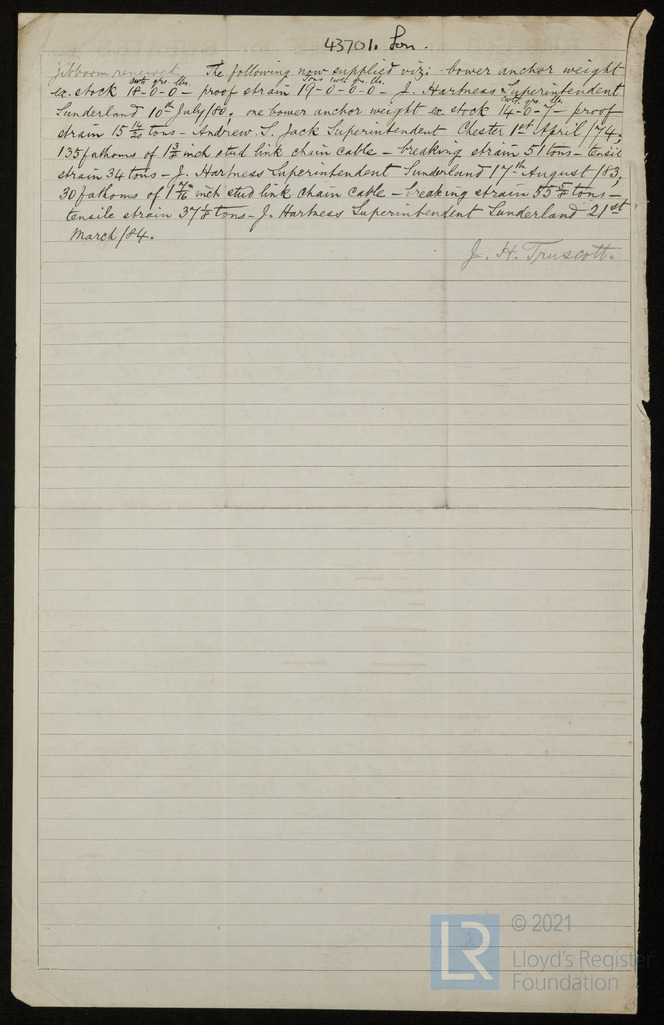 43701. Lon.
jibboom renewed. The following now supplied viz: - bower anchor weight
cwts qrs. lbs. Tons cwts. qrs. lbs.
ex. stock 18-0-0- proof strain 19-0-0-0- J. Hartness Superintendent
cwts qrs lbs.
Sunderland 10th July/80; one bower anchor weight ex. stock 14-0-7- proof
strain 15 14/20 tons - Andrew S. Jack Superintendent Chester 1st April/74;
135 fathoms of 1 3/8 inch stud link chain cable - breaking strain 51 tons - tensile
strain 34 tons - J. Hartness Superintendent Sunderland 17th August/83;
30 fathoms of 1 7/16 inch stud link chain cable - breaking strain 55 5/8 tons -
tensile strain 37 1/8 tons - J. Hartness Superintendent Sunderland 21st
March/84.
J. H. Truscott.
© 2021
LR
Lloyd's Register
Foundation